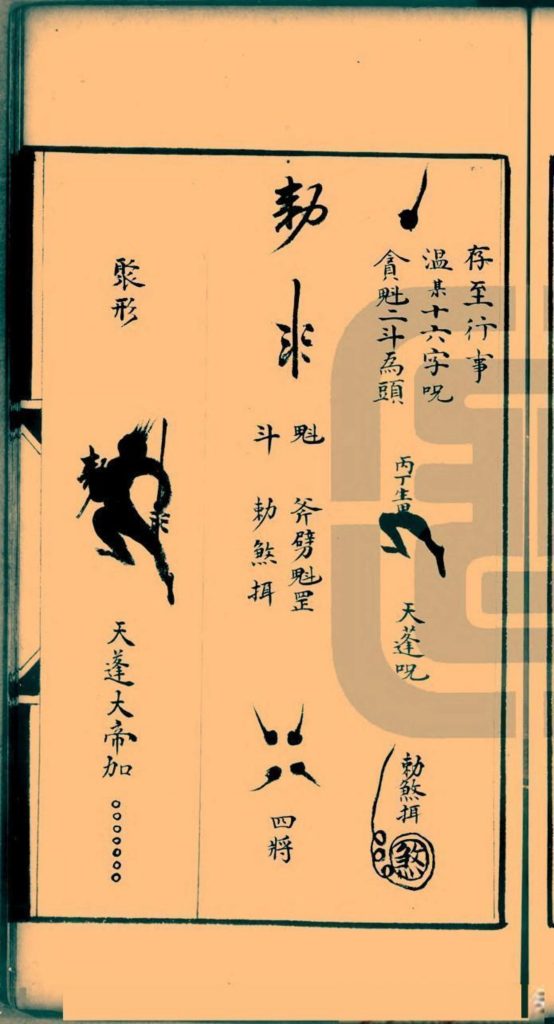 存至行事
温某十六字呪
貪魁二斗為頭
丙丁生
天蓬呪
勅煞挕
煞
勅
魁
斧劈魁罡
斗
勅煞挕
四將
聚形
勅
天蓬大帝加